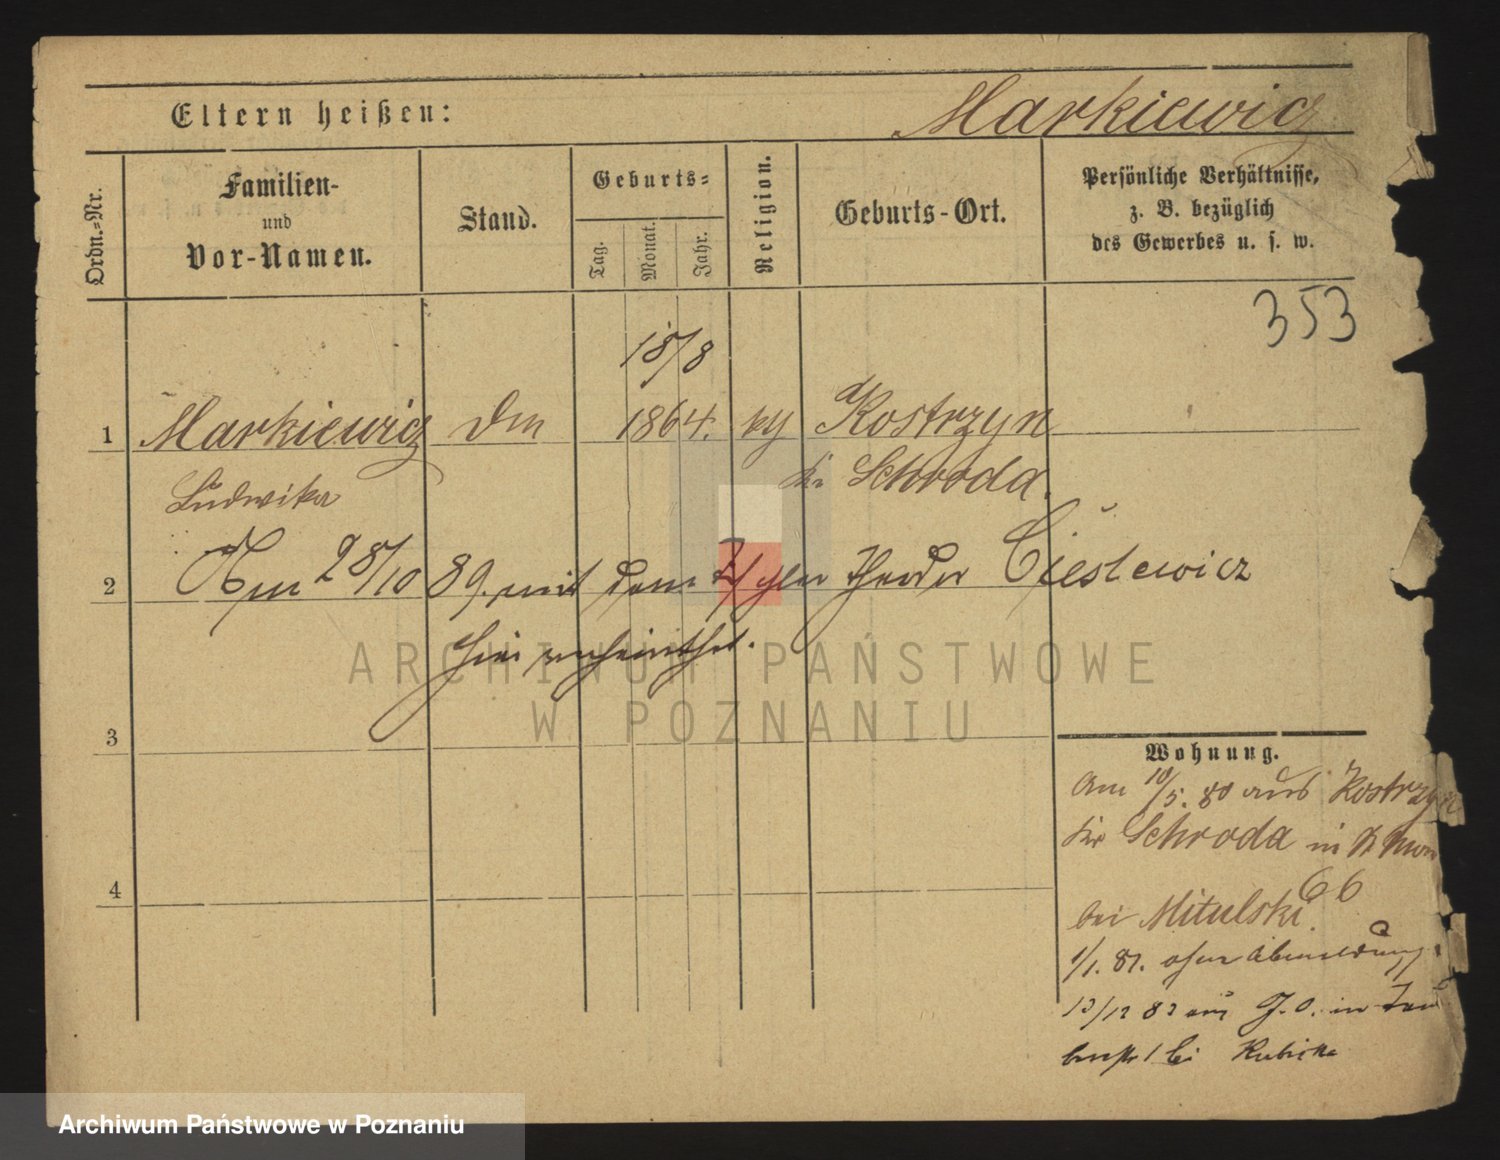 Eltern heißen:
Markiewicz
Ordn.-Nr.
Familien-
und
Vor-Namen.
Stand.
Geburts-
Tag.
Monat.
Jahr.
Religion.
Geburts-Ort.
Persönliche Verhältnisse,
z. B. bezüglich
des Gewerbes u. s. w.
353
18/8
1 Markiewicz 1864. Kostrzyn
Ludwika Schroda.
2 Am 28/10 89. mit dem Theodor Cieslewicz
hier verheirathet.
3
4
Wohnung.
Am 10/5. 80 aus Kostrzyn
Kr Schroda in
66
bei Mitulski.
1/1. 81. ohne Abmeldung
13/12 83 aus J. O. in
1 bei
ARCHIWUM PAŃSTWOWE
W POZNANIU
Archiwum Państwowe w Poznaniu